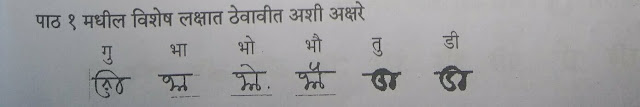 पाठ १ मधील विशेष लक्षात ठेवावीत अशी अक्षरे
गु भा भो भौ तु डी
𑘐𑘳 𑘥𑘰 𑘥𑘻. 𑘥𑘼 𑘝𑘳 𑘚𑘲